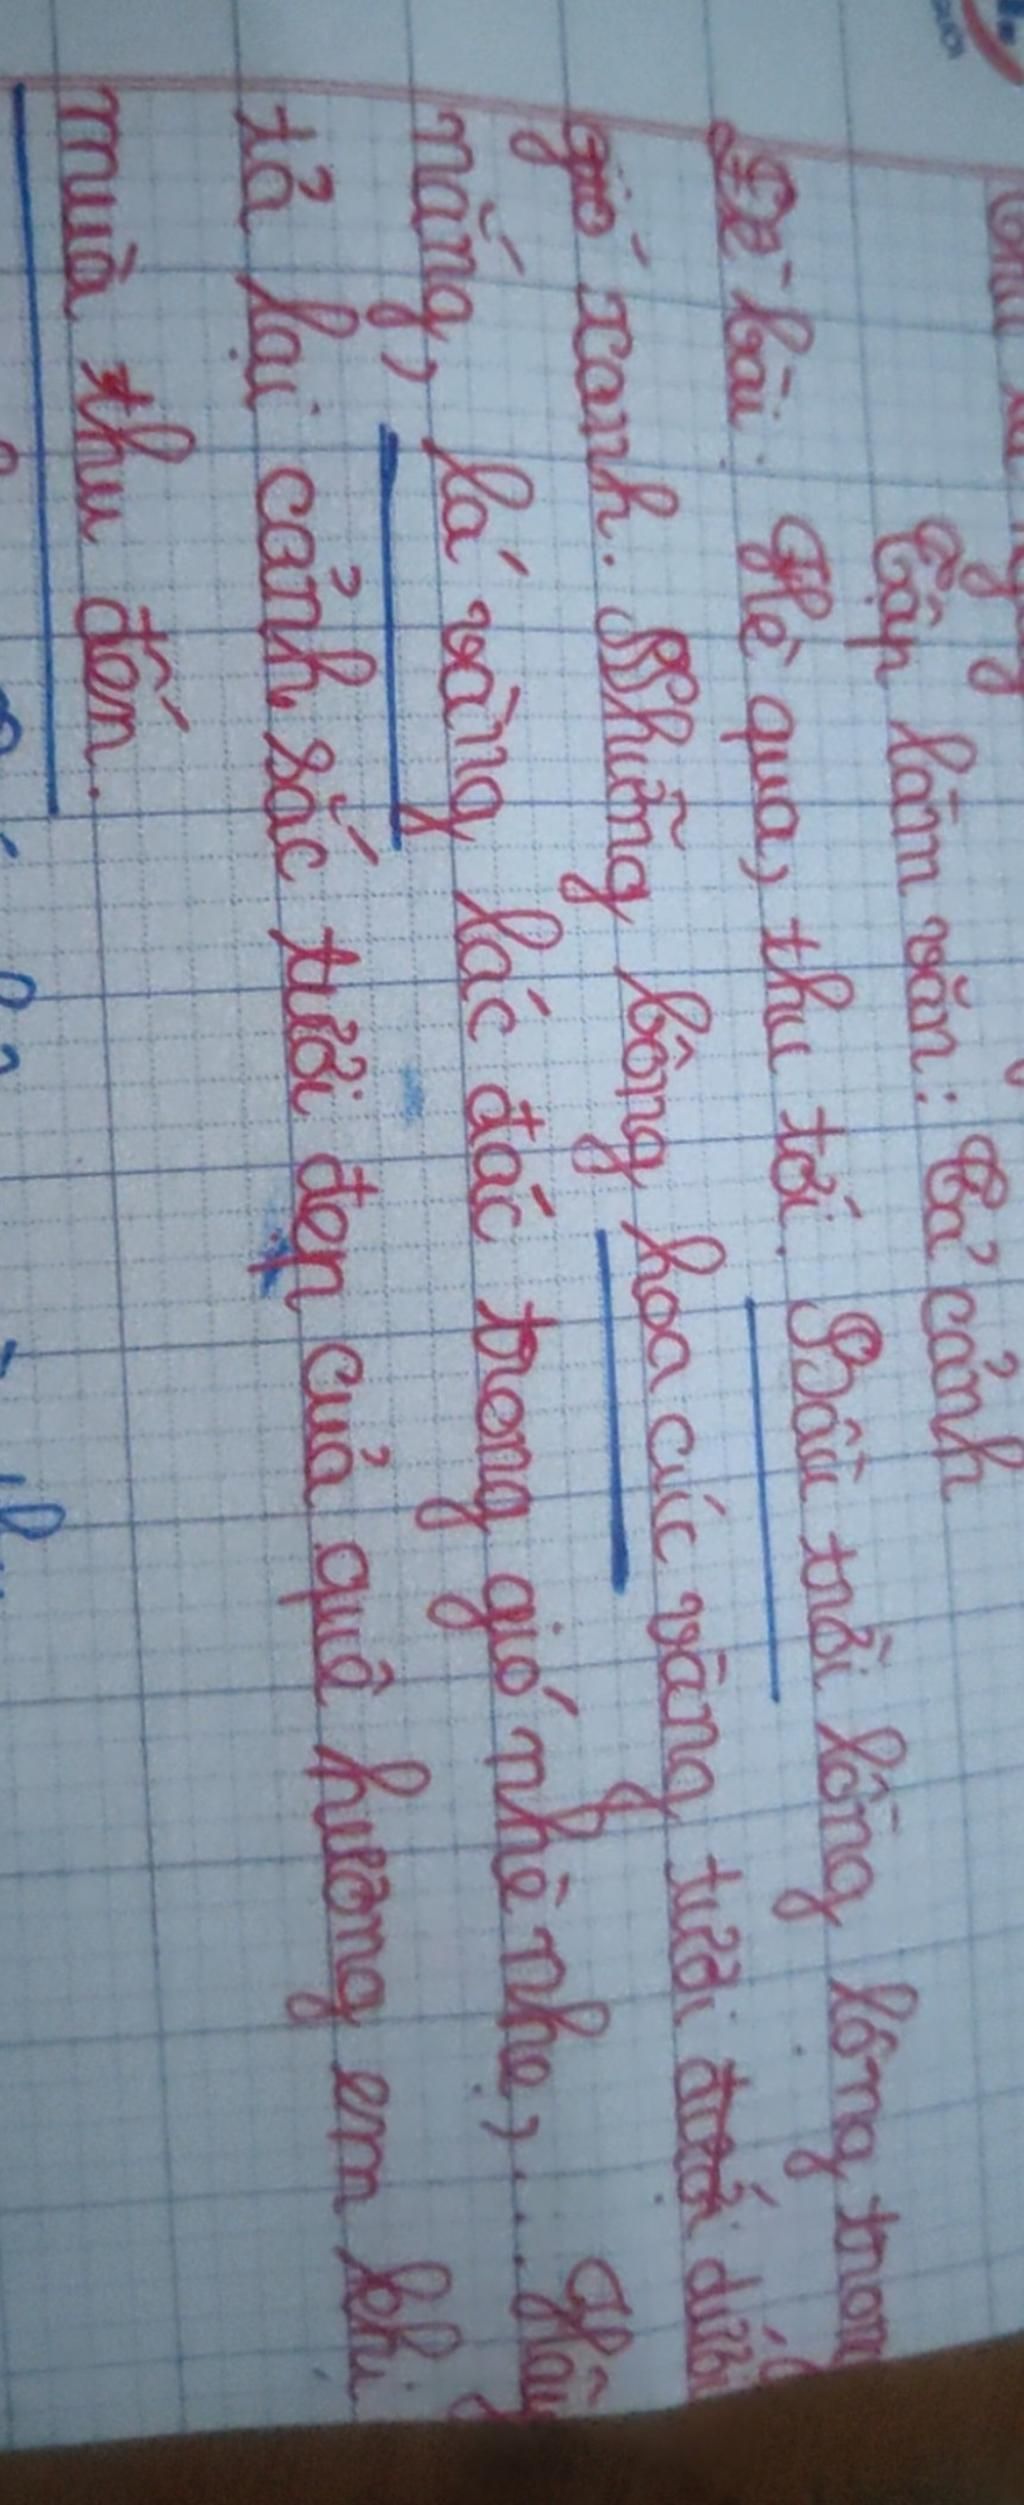 Tập làm văn: Tả cảnh
Đề bài: Hè qua, thu tới. Bầu trời lồng lộng trong
gió xanh. Những bông hoa cúc vàng tươi dưới
nắng, lá vàng lác đác trong gió nhè nhẹ,... Hãy
tả lại cảnh sắc tươi đẹp của quê hương em khi
mùa thu đến.